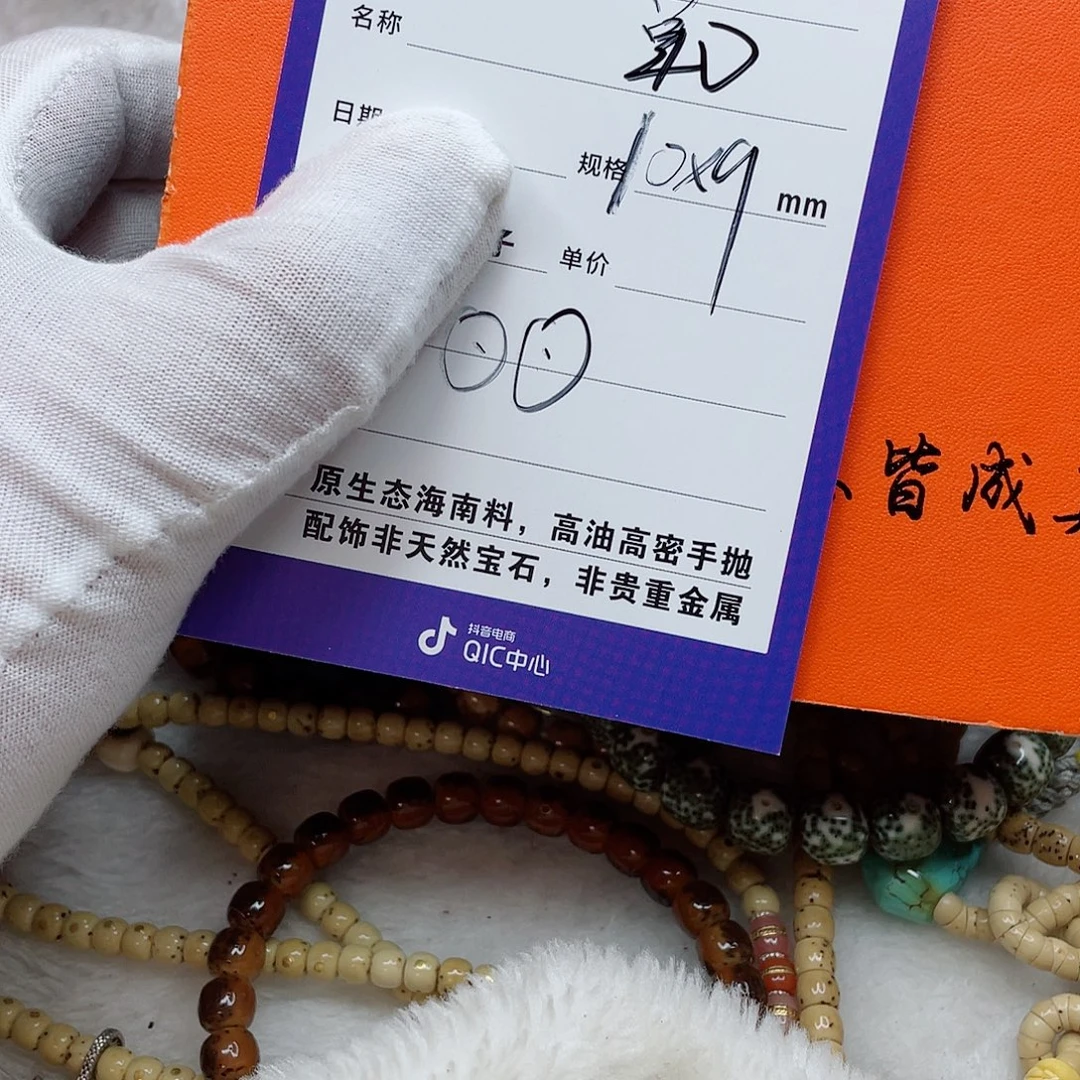 名称
日期 规格 10x9 mm
子 单价
00
原生态海南料，高油高密手抛
配饰非天然宝石，非贵重金属
抖音电商
QIC中心
皆成